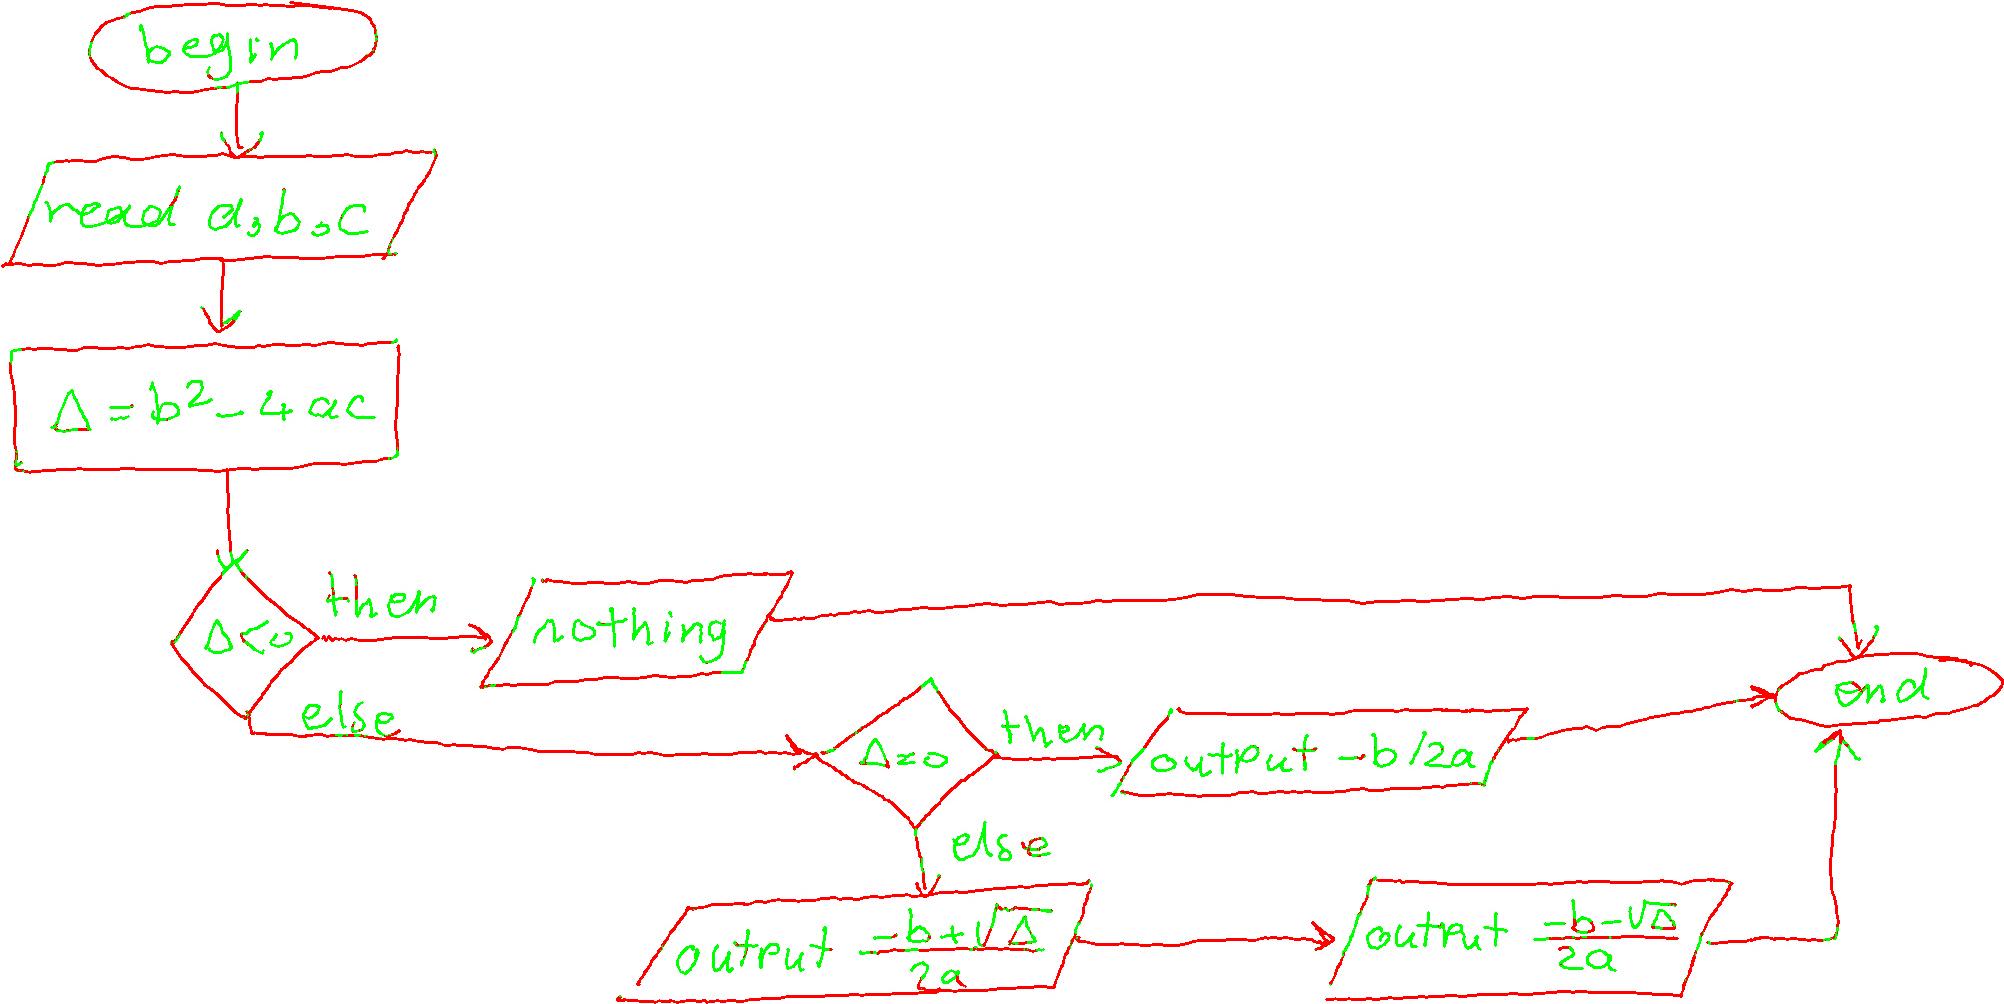 begin
read a,b,c
Δ=b²-4ac
Δ<0
then
nothing
else
Δ=0
then
output -b/2a
end
else
output (-b+√Δ)/2a
output (-b-√Δ)/2a